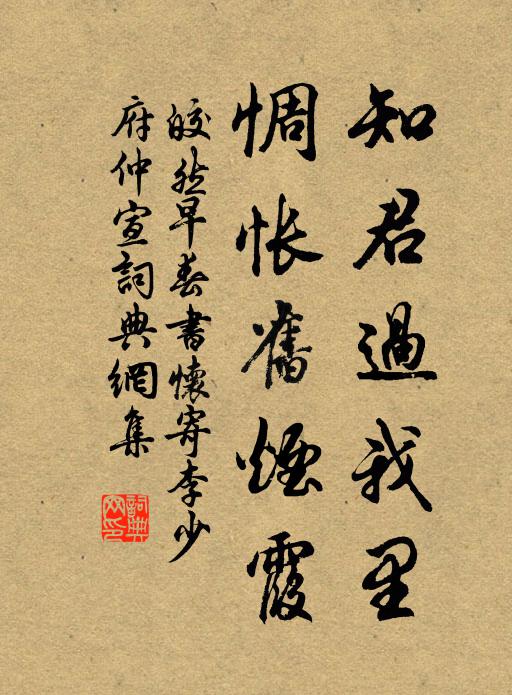 知君過我里
惆悵舊煙霞
皎然早春書懷寄李少
府仲宣詞典網集
詞典
网印